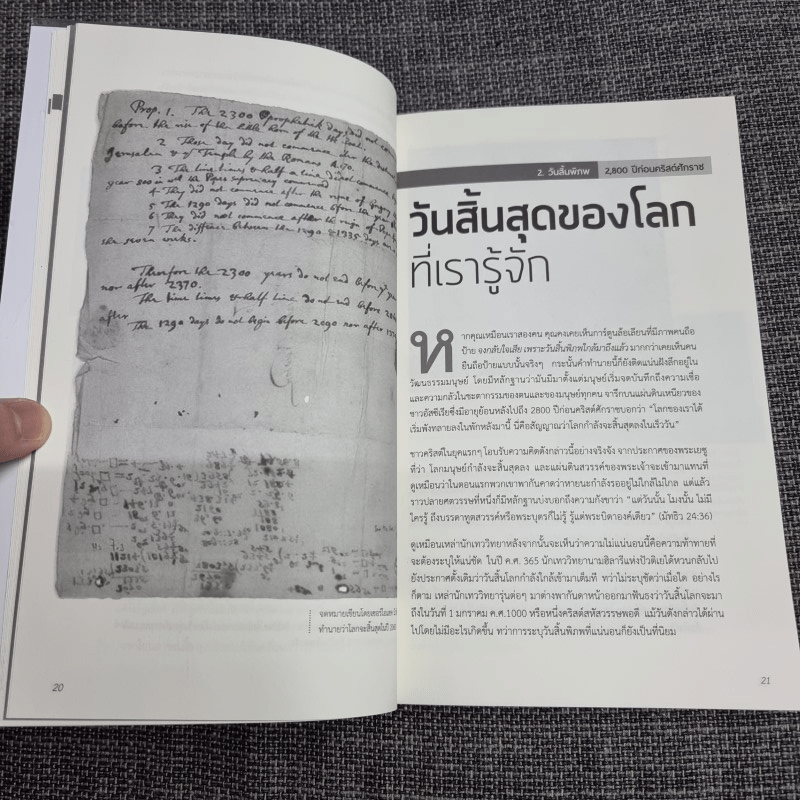 Prop. 1. The 2300 prophetick days did not commence
before the rise of the little horn of the He Goat.
2 Those day did not commence after the
Jerusalem & ye Temple by the Romans A. 70.
3 The time times & half a time did not commence
year 800 in wch the Popes supremacy commenced
4 They did not commence after the reigne of Gregory
5 The 1290 days did not commence before the year
6 They did not commence after the reign of Pope
7 The difference between the 1290 & 1335 days are
the seven weeks.
Therefore the 2300 years do not end before ye year
nor after 2370.
The time times & half time do not end before
after
The 1290 days do not begin before 2090 nor after
จดหมายเขียนโดยเซอร์ไอแซค
ทำนายว่าโลกจะสิ้นสุดในปี
20
2. วันสิ้นพิภพ 2,800 ปีก่อนคริสต์ศักราช
วันสิ้นสุดของโลก
ที่เรารู้จัก
หากคุณเหมือนเราสองคน คุณคงเคยเห็นการ์ตูนล้อเลียนที่มีภาพคนถือ
ป้าย จงกลับใจเสีย เพราะวันสิ้นพิภพใกล้มาถึงแล้ว มากกว่าเคยเห็นคน
ยืนถือป้ายแบบนั้นจริงๆ กระนั้นคำทำนายนี้ก็ยังติดแน่นฝังลึกอยู่ใน
วัฒนธรรมมนุษย์ โดยมีหลักฐานว่ามันมีมาตั้งแต่มนุษย์เริ่มจดบันทึกถึงความเชื่อ
และความกลัวในชะตากรรมของตนและของมนุษย์ทุกคน จารึกบนแผ่นดินเหนียวของ
ชาวอัสซีเรียซึ่งมีอายุย้อนหลังไปถึง 2800 ปีก่อนคริสต์ศักราชบอกว่า “โลกของเราได้
เริ่มพังทลายลงในพักหลังมานี้ นี่คือสัญญาณว่าโลกกำลังจะสิ้นสุดลงในเร็ววัน”
ชาวคริสต์ในยุคแรกๆ โอบรับความคิดดังกล่าวนี้อย่างจริงจัง จากประกาศของพระเยซู
ที่ว่า โลกมนุษย์กำลังจะสิ้นสุดลง และแผ่นดินสวรรค์ของพระเจ้าจะเข้ามาแทนที่
ดูเหมือนว่าในตอนแรกพวกเขาพากันคาดว่าหายนะกำลังรออยู่ไม่ใกล้ไม่ไกล แต่แล้ว
ราวปลายศตวรรษที่หนึ่งก็มีหลักฐานบ่งบอกถึงความกังขาว่า “แต่วันนั้น โมงนั้น ไม่มี
ใครรู้ ถึงบรรดาทูตสวรรค์หรือพระบุตรก็ไม่รู้ รู้แต่พระบิดาองค์เดียว” (มัทธิว 24:36)
ดูเหมือนเหล่านักเทววิทยาหลังจากนั้นจะเห็นว่าความไม่แน่นอนนี้คือความท้าทายที่
จะต้องระบุให้แน่ชัด ในปี ค.ศ. 365 นักเทววิทยานามฮิลารีแห่งปัวติเยได้หวนกลับไป
ยังประกาศดั้งเดิมว่าวันสิ้นโลกกำลังใกล้เข้ามาเต็มที ทว่าไม่ระบุชัดว่าเมื่อใด อย่างไร
ก็ตาม เหล่านักเทววิทยารุ่นต่อๆ มาต่างพากันดาหน้าออกมาฟันธงว่าวันสิ้นโลกจะมา
ถึงในวันที่ 1 มกราคม ค.ศ.1000 หรือหนึ่งคริสต์สหัสวรรษพอดี แม้วันดังกล่าวได้ผ่าน
ไปโดยไม่มีอะไรเกิดขึ้น ทว่าการระบุวันสิ้นพิภพที่แน่นอนก็ยังเป็นที่นิยม
21